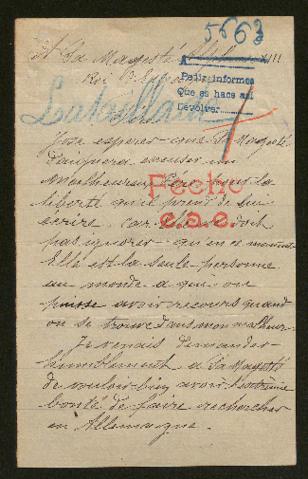 5663
A Sa Magesté Alphonse XIII
Roi
Pedir informes
Que se hace así
Devolver
J'ose esperer que Sa Magesté
daignera excuser un
Malheureux Père pour la
liberté qu'il prend de lui
écrire, car
pas ignorer qu'en ce moment
Elle est la seule personne
au monde a qui on
puisse avoir recours quand
on se trouve dans mon malheur
Je venais demander
humblement a Sa Magesté
de vouloir bien avoir l'extrême
bonté de faire rechercher
en Allemagne
Feche
c.a.e.